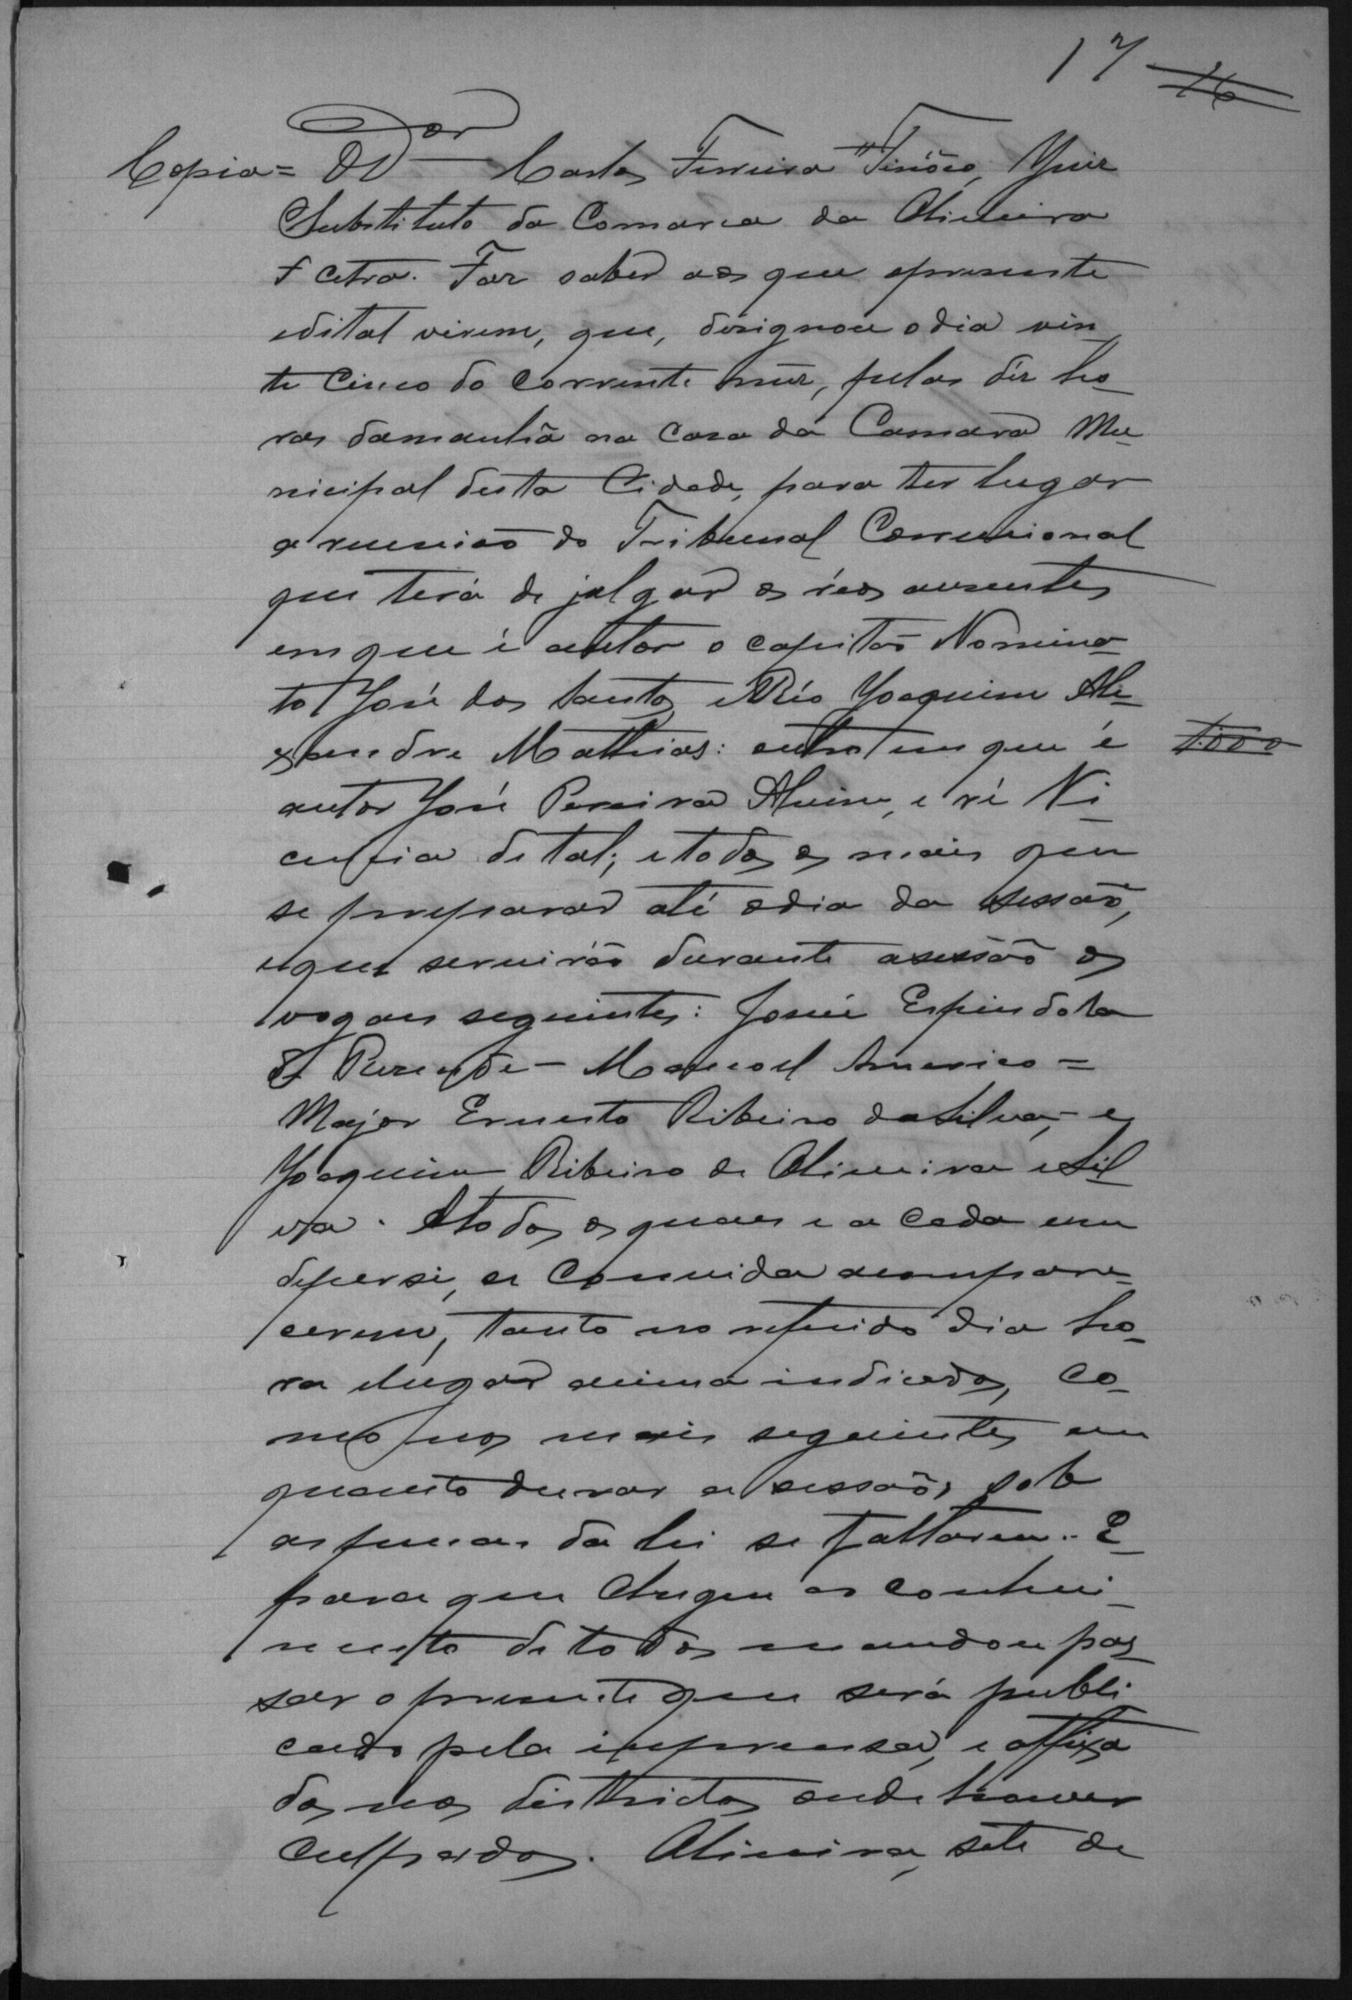 17 16
Copia = O Dor Carlos Ferreira Tinôco, Juiz
Substituto da Comarca da Oliveira
&cetra. Faz saber aos que opresente
edital virem, que, designou odia vin
te cinco do corrente mêz, pelas déz ho
ras damanhã na casa da Camara Mu
nicipal desta Cidade, para ter lugar
a reunião do Tribunal Correcional
que terá de julgar os réos ausentes
emque é autor o capitão Nomina
to José dos Santos eRéo Joaquim Ale
xandre Mathias: outro em que é
1.000
autor José Pereira Alvim, e ré Ni
cacia de tal; etodos os mais que
se preparar até odia da sessão,
eque servirão durante asessão os
vogaes seguintes: Josué Espindola
de Rezende - Manoel Americo =
Major Ernesto Ribeiro daSilva, - e
Joaquim Ribeiro de Oliveira eSil
va. Atodos os quaes e a cada um
depersi, se convida acompare
cerem, tanto no referido dia ho
ra elugar acima indicados, co
mo nos mais seguintes em
quanto durar a sessão, sob
aspenas da lei se faltarem. E
para que chegue ao conheci
mento detodos mandou pas
sar opresente que será publi
cado pela imprensa, e affixa
dos nos districtos onde houver
culpados. Oliveira, sete de